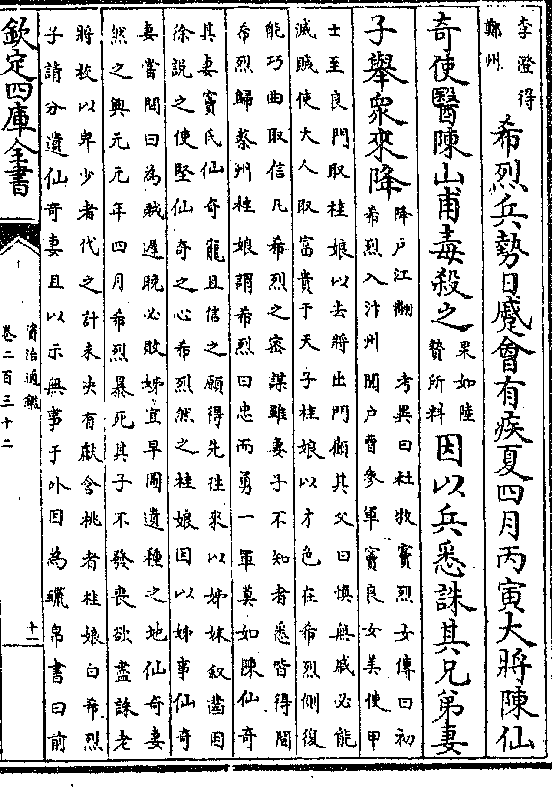 李澄得
鄭州
希烈兵勢日蹙會有疾夏四月丙寅大將陳仙
奇使醫陳山甫毒殺之
果如陸
贄所料
因以兵悉誅其兄弟妻
子舉衆來降
降戸江翻
考異曰杜牧竇烈女傳曰初
希烈入汴州聞戸曹參軍竇良女美使甲
士至良門取桂娘以去將出門顧其父曰慎無戚必能
滅賊使大人取富貴于天子桂娘以才色在希烈側復
能巧曲取信凡希烈之密謀雖妻子不知者悉皆得聞
希烈歸蔡州桂娘謂希烈曰忠而勇一軍莫如陳仙奇
其妻竇氏仙奇寵且信之願得先往來以姊妹叙齒因
徐說之使堅仙奇之心希烈然之桂娘因以姊事仙奇
妻嘗間曰為賊遲晩必敗姊宜早圖遺種之地仙奇妻
然之興元元年四月希烈暴死其子不發喪欲盡誅老
將校以卑少者代之計未決有獻含桃者桂娘白希烈
子請分遺仙奇妻且以示無事于外因為蠟帛書曰前
欽定四庫全書
資治通鑑
卷二百三十二
十一